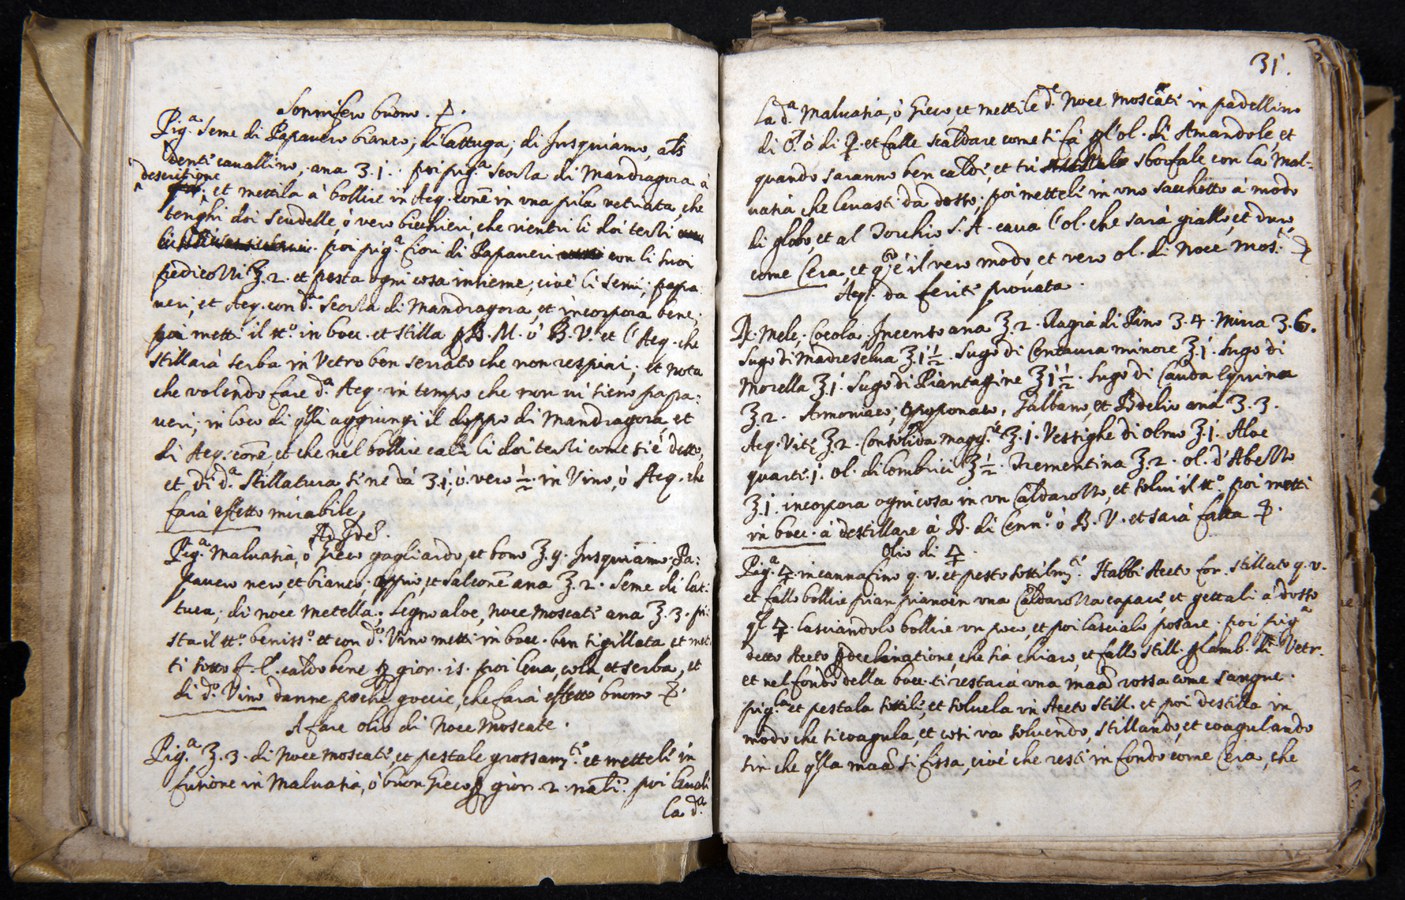 Sonnifero buono.
Pig.ª Seme di Papavero bianco; di Lattuga; di Jusquiamo, als
denti cavallino, ana ʒ.1. poi pig.ª Scorza di Mandragora à
descrittione
et mettila à bollire in Aeq. coñe in una pila vetriata, che
tenghi doi scudelle, ò vero bicchieri, che rientri li doi terzi
poi pig.ª fiori di Papaveri con li suoi
pedicolli ʒ.2. et pesta ogni cosa insieme, cioè li semi, papa:
veri, et Aeq. con d.ª Scorza di Mandragora et incorpora bene;
poi mett.i il tt.º in bocc. et stilla p B. M. ò B. V.º et l'Aeq. che
stillarà serba in Vetro ben serrato che non respiri; et nota
che volendo fare d.ª Aeq. in tempo che non vi sieno papa:
veri, in loco di q̃lli aggiungi il doppo di Mandragora, et
di Aeq. coñe, et che nel bollire cali li doi terzi come si è detto,
et di d.ª Stillatura si ne dà ʒ.1, ò vero ½ in Vino, ò Aeq. che
farà effetto mirabile,
Ad Idẽ.
Pig.ª Malvatia, ò Greco gagliardo, et bono ʒ.9. Jusquiamo, Pa:
pavero nero, et bianco, oppio, et Salcoñe ana ʒ.2. Seme di Lat:
tuca, di noce metella, Legno aloe, noce moscate ana ʒ.3. pi:
sta il tt.º beniss.º et con d.º Vino metti in bocc. ben sigillata et met:
ti sotto f. E. caldo bene p gior. 15. poi leva, cola, et serba, et
di d.º Vino danne poche goccie, che farà effetto buono
A fare olio di Noce Moscate.
Pig.ª ʒ.3. di Noce moscate, et pestale grossam.te et mettele in
fusione in Malvatia, ò buon Greco p gior. 2. nãli. poi levali
la d.ª
31.
La d.ª Malvatia, ò Greco, et metti le d.e Noce Moscate in padellino
di ò di ♀ et falle scaldare come si fà p l'ol. di Amandole, et
quando saranno ben calde, et tu sboufale con la Mal:
vatia che levasti da dosso, poi mettele in uno sacchetto à modo
di globo, et al Torchio S. A. cava l'ol. che sarà giallo, et duro,
come Cera, et q.º è il vero modo, et vero ol. di Noce Mos.e
Aeq. da ferite provata.
℞. Mele, Cocola, Incenso ana ʒ.2. Ragia di Pino ʒ.4. Mirra ʒ.6.
Sugo di Madreselva ʒ1½. Sugo di Centaura minore ʒ1. Sugo di
Morella ʒ1. Sugo di Piantaggine ʒ1½. Sugo di Cauda Equina
ʒ2. Armoniaco, Oppoponaco, Galbano et Bdelio ana ʒ.3.
Aeq. Vite ʒ.2. Consolida magg.re ʒ.1. Vessighe di olmo ʒ1. Aloe
quarti 1. ol. di lombrici ʒ½. Trementina ʒ.2. ol. d'Abezzo
ʒ.1. incorpora ogni cosa in un Caldarozzo, et solvi il tt.º, poi metti
in bocc. à destillare à B. di Cenn.º ò B. V. et sarà fatta
Olio di ♁.
Pig.ª ♁ in canna fino q. v. et pesto sottilm.te Habbi Aceto for. stillato q. v.
et fallo bollire pian piano in una Caldarozza capace, et gettali a dosso
q̃l ♁. lasciandolo bollire un poco, et poi lascialo posare. poi pig.ª
detto Aceto p declinatione che sia chiaro, et fallo still. p Lamb. di Vetr.
et nel fondo della bocc. ti restara una maã rossa come sangue.
pig.la et pestala sottile, et solvela in Aceto still. et poi destilla in
modo che si coagula, et così va solvendo, stillando et coagulando
sin che q̃lla maã si fissa, cioè che resti in fondo come Cera, che